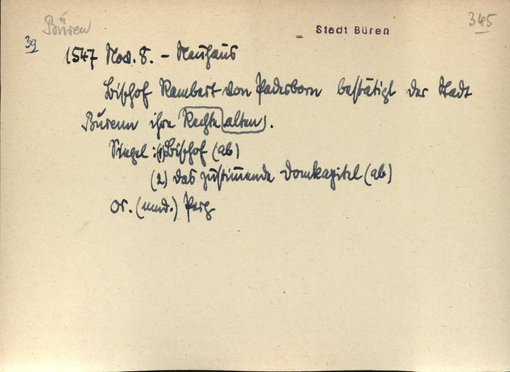 Büren
Stadt Büren
345
39
1547 Nov. 8. - Neuhaus
Bischof Rembert von Paderborn bestätigt der Stadt
Bürenn ihre Rechte (alten).
Siegel: (1) Bischof (ab)
(2) das zustimmende Domkapitel (ab)
Or. (mnd.) Perg